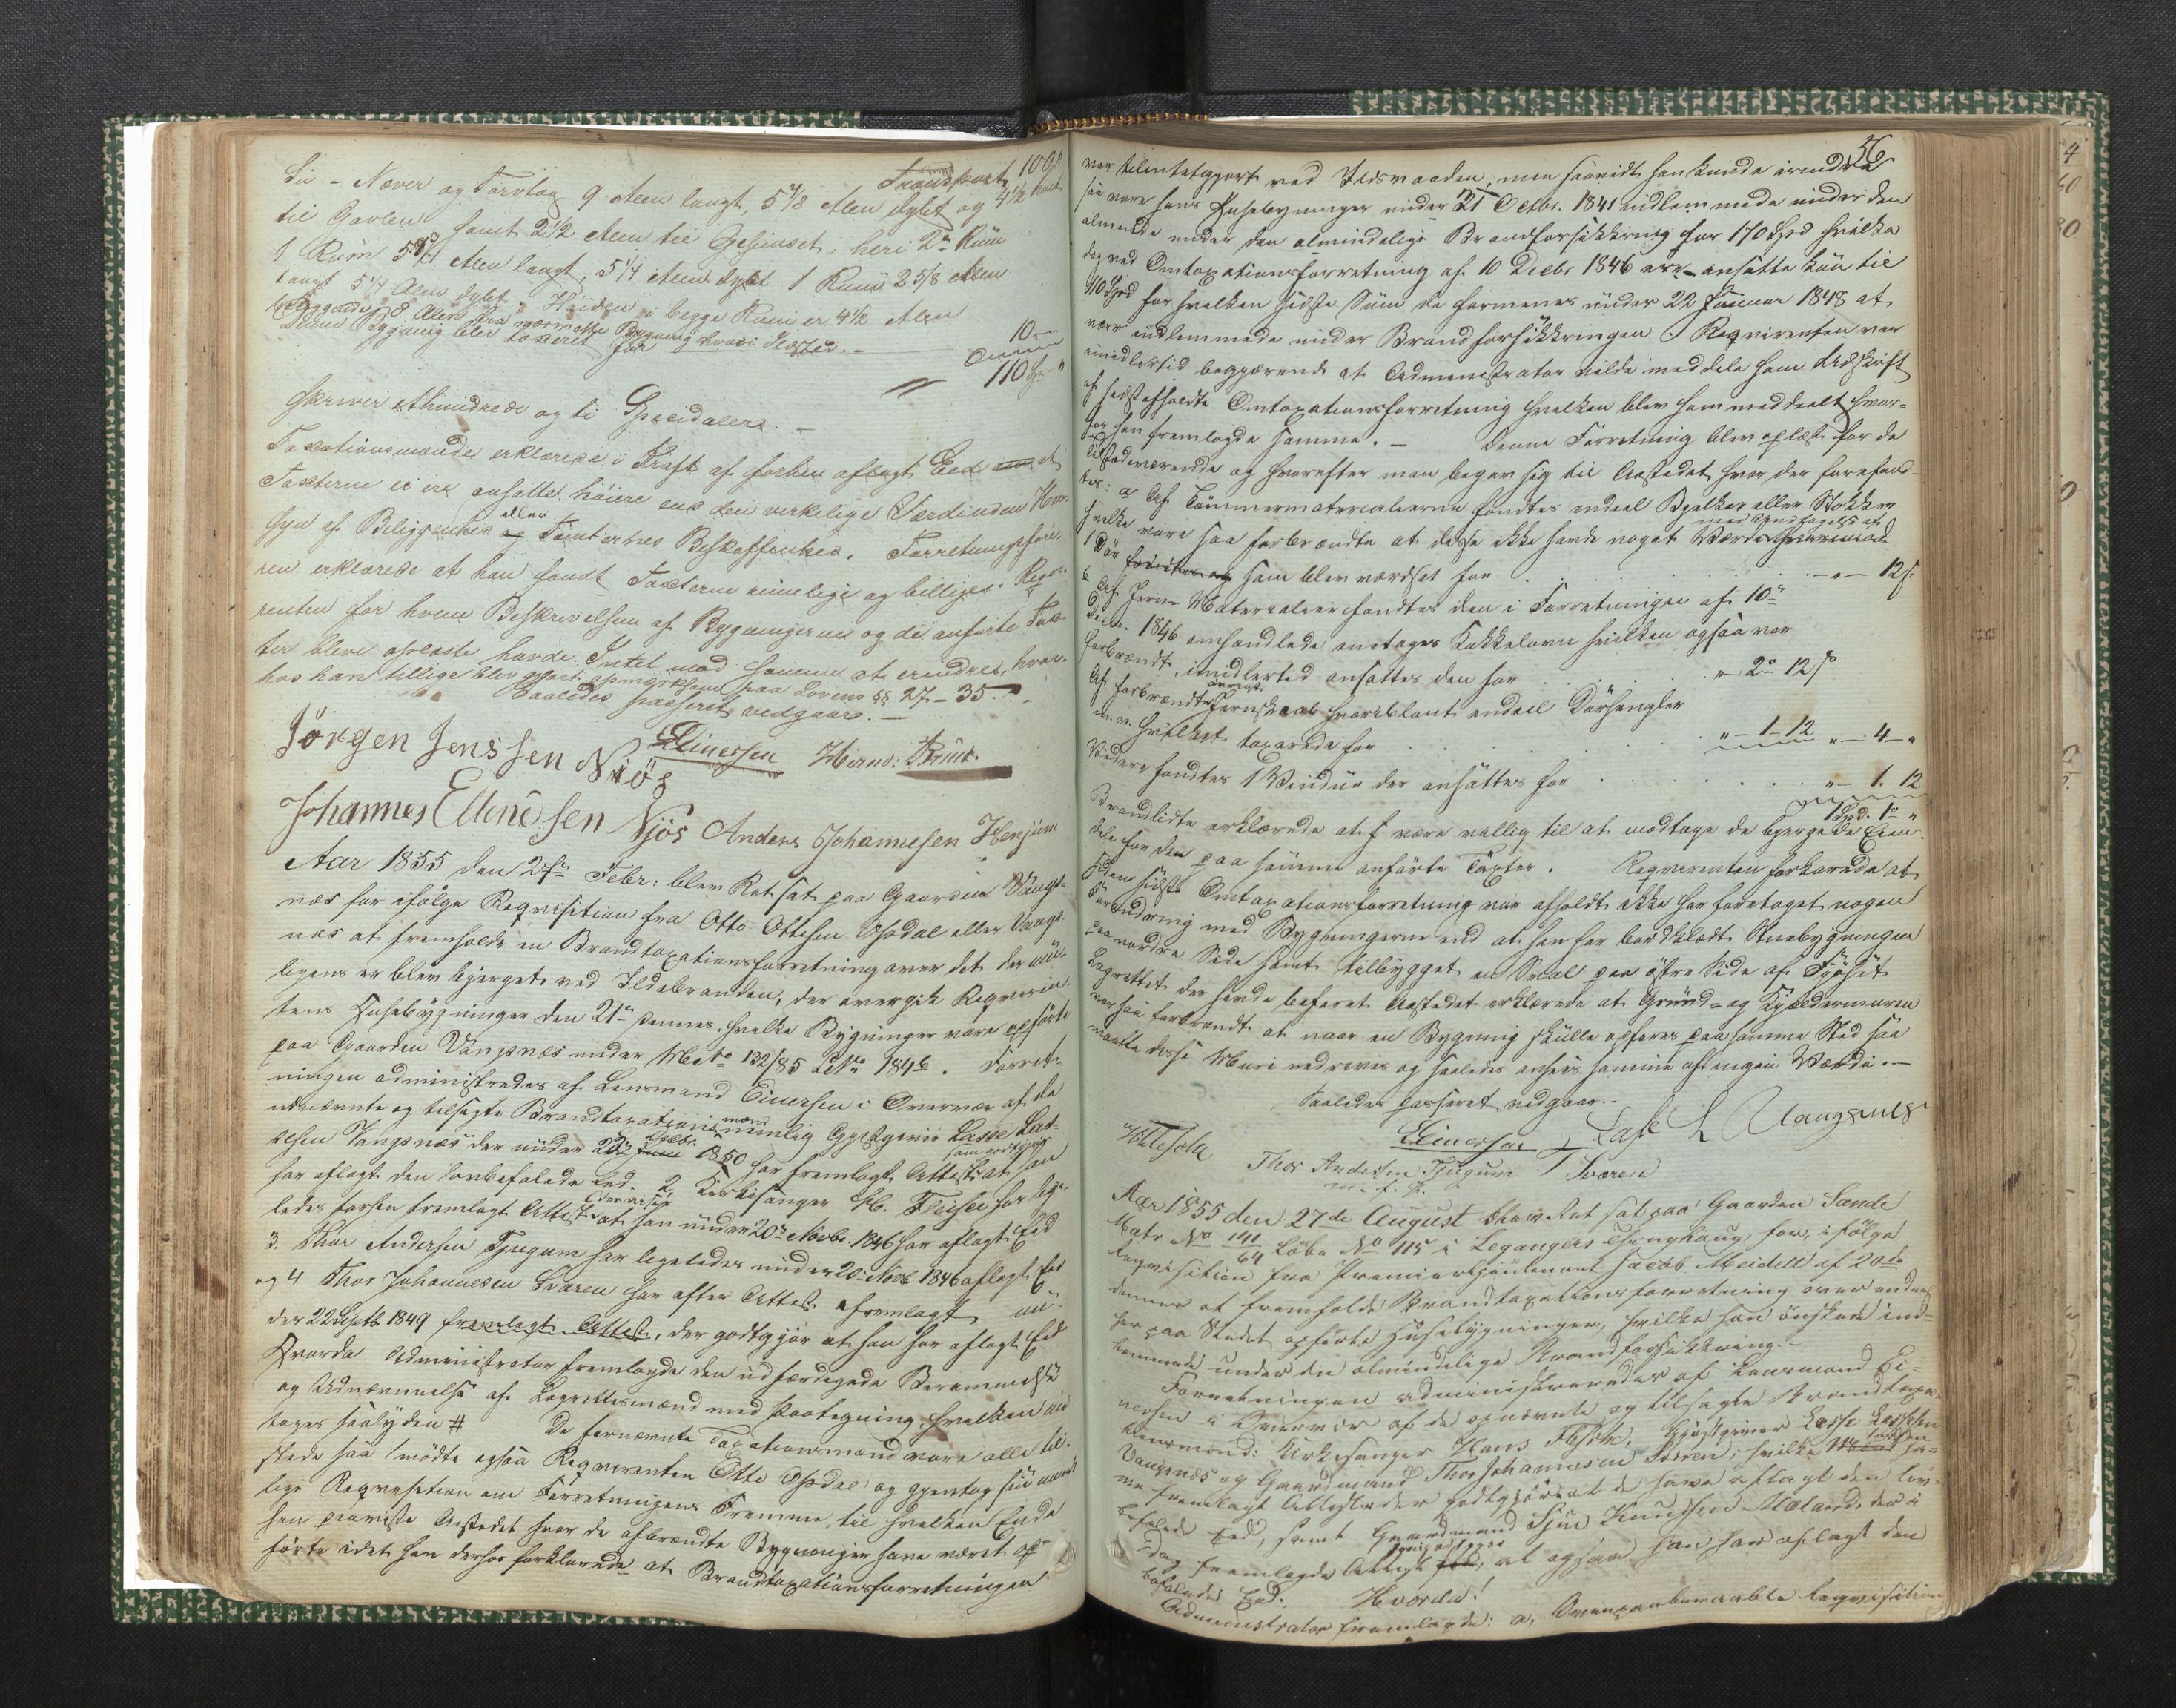 Transport 100
Liv - Næver og Torvtag 9 Alen langt, 5 7/8 Alen dybt og 4 1/2
til Gavlen samt 2 1/2 Alen til Gesimset, heri 2de Rum
1 Rum Alen langt, 5 1/4 Alen dybt 1 Rum 2 5/8 Alen
langt 5 1/4 Alen dybt. Høiden i begge Rum er 4 1/2 Alen
Beliggende 8 Alen fra nærmeste Bygning hvori Ildsted. -
Denne Bygning blev taxeret for 10
110
skriver Ethundrede og ti Speciedaler. -
Taxationsmænde erklærede i Kraft af forhen aflagt Eed at
Taxterne ei ere ansatte høiere end den virkelige Værdi uden Hen-
syn af Beliggenhed eller Tomternes Beskaffenhed. Forretningsføre-
ren erklærede at han fandt Taxterne rimelige og billiges. Reqvi-
renten for hvem Beskrivelsen af Bygningerne og de anførte Tax-
ter bleve oplæste havde Intet mod samme at erindre, hvor-
hos han tillige blev gjort opmærksom paa Lovens §§ 27 - 35.
Saaledes passeret vedgaaes. -
Jørgen Jenssen Niøs Eeinersen Hirm: Brun.
Johannes Ellendsen Njøs Anders Johannesen Henjum
Aar 1855 den 27de Febr: blev Ret sat paa Gaarden Vangs-
næs for ifølge Reqvisition fra Otto Ottesen Opdal eller Vangs-
næs at fremholde en Brandtaxationsforretning over det der mu-
ligens er blev bjerget ved Ildebranden, der overgik Reqviren-
tens Huusebygninger den 21de dennes, hvilke Bygninger vare opførte
paa Gaarden Vangsnæs under Matr 132/85 . Forret-
ningen administredes af Lensmand Einersen i Overvær af de
udnævnte og tilsagte Brandtaxationsmænd nemlig Gjestgiver Lasse Las-
sesen Vangsnæs der under 22de 1850 har fremlagt Attest at han
har aflagt den lovbefalede Eed. 2 Kirkesanger H. Flesche har lige-
ledes forhen fremlagt Attest at han under 20de Novbr 1846 har aflagt Eed
3. Thor Andersen Tjugum har ligeledes under 20de Novb 1846 aflagt Eed
og 4 Thor Johannesen Sværen har efter Attest fremlagt un-
der 22 Septb 1849 fremlagt Attest, der godtgjør at han har aflagt Eed
Hvorda Administrator fremlagde den udfærdigede Berammelse
og Udnævnelse af Laugrettesmænd med Paategning, hvilken ind-
tages saalyden # De fornævnte Taxationsmænd vare alle til-
stede saa mødte ogsaa Reqvirenten Otto Opdal og gjentog sin mundt-
lige Reqvisition om Forretningens Fremme, til hvilken Ende
han paaviste Aastedet hvor de afbrændte Bygninger have været op-
førte idet han derhos forklarede at Brandtaxationsforretningen
56
var tilintetgjort ved Ildsvaaden, men saavidt han kunde erindre
saa vare hans Huusebygninger under 21 Octbr. 1841 indlemmede under den
almende under den almindelige Brandforsikkring for 170 Spd hvilke
dog ved Omtaxationsforretning af 10 Decbr 1846 ere ansatte kun til
110 Spd for hvilken sidste Sum de formenes under 22 Januar 1848 at
være indlemmede under Brandforsikkringen. Reqvirenten var
imidlertid begjærende at Administrator vilde meddele ham Udskrift
af sidst afholdte Omtaxationsforretning hvilken blev ham meddeelt hvor-
for han fremlagde samme. - Denne Forretning blev oplæst for de
tilstedeværende og hvorefter man begav sig til Aastedet hvor der forefand-
tes: a Af Tømmermaterialierne fandtes endeel Bjelker eller Stokker
hvilke vare saa forbrændte at disse ikke havde noget Værd med Undtagelse af
1 Dør som blev værdsat for . . . . . " - " - 12 s.
b Af Jern-Materialier fandtes den i Forretningen af 10de
Decbr. 1846 omhandlede Kakkelovn hvilken ogsaa var
forbrændt, imidlertid ansattes den for . . . " 2 " 12 s
Af forbrændte øvrigt Jernskrab hvoriblant endeel Dørhengsler
m. v. hvilket taxerede for . . . . " - 1 - 12 " - 4 - "
Videre fandtes 1 Vindue der ansattes for . . . . " - 1. 12
1 Spd. 1 "
Brandlidte erklærede at være villig til at modtage de bjergede Eien-
dele for den paa samme anførte Taxter. Reqvirenten forklarede at
siden sidste Omtaxationsforretning var afholdt ikke har foretaget nogen
Forandring med Bygningerne end at han har bordklædt Stuebygningen
paa nordre Side samt tilbygget en Sval paa østre Side af Fjøset
Laugrettet der havde befaret Aastedet erklærede at Grund- og Kjældermuren
var saa forbrændt at naar en Bygning skulle opføres paa samme Sted saa
maatte disse Mure nedrives og saaledes ansees samme af ingen Værdi. -
Saaledes passeret vedgaaes. -
HFlesche Eeinersen Lasse L Vangsnes
Thor Andersen Tjugum T Sværen
m. f. P.
Aar 1855 den 27de August blev Ret sat paa Gaarden Sande
Matr No 141/64 Løbe No 115 i Leganger Thinglaug, for, i følge
Reqvisition fra Premierløitenant Jacob Meidell af 20de
dennes at fremholde Brandtaxationsforretning over endeel
her paa Stedet opførte Huusebygninger, hvilke han ønskede ind-
lemmede under den almindelige Brandforsikkring. -
Forretningen administreredes af Lensmand Ei-
nersen i Overvær af de opnævnte og tilsagte Brandtaxa-
tionsmænd: Kirkesanger Hans Flesche, Gjæstgiver Lasse Lassesen
Vangsnæs og Gaardmand Thor Johannesen Sværen, hvilke
fremlagt Attester godtgjørende at de have aflagt den lov-
befalede Eed, samt Gaardmand Sjur Knudsen Mæland, der i
dag fremlagde Attest at ogsaa han har aflagt den
befalede Eed. Hvorda!
Administrator fremlagde: a, Ovenpaaberaabte Reqvisition